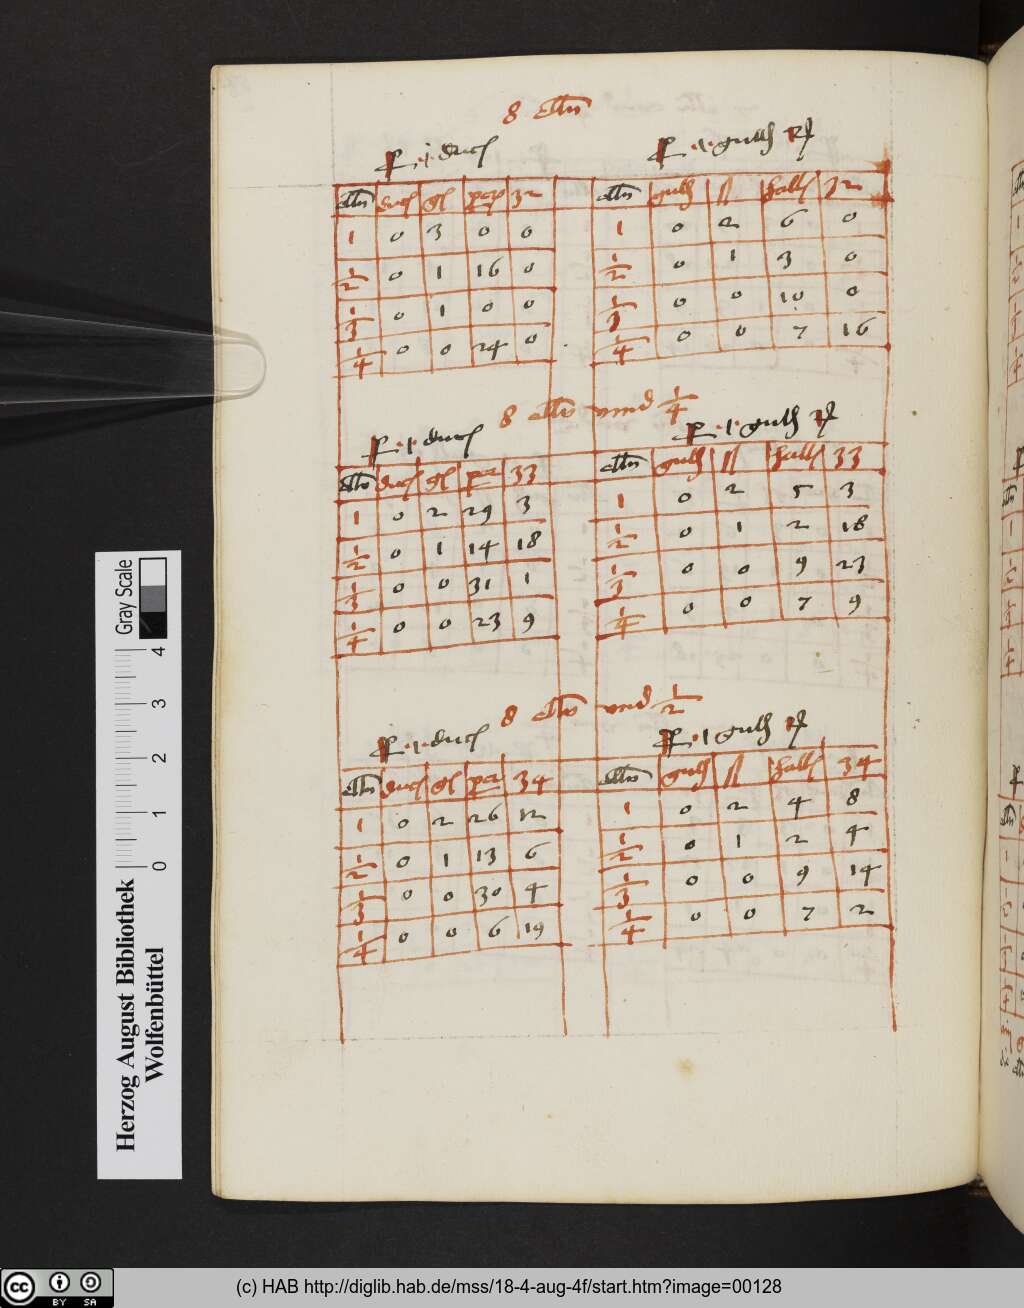 8 elln
P 1 duc P 1 guld
elln duc gl par 32 elln guld ß hall 32
1 0 3 0 0 1 0 2 6 0
1/2 0 1 16 0 1/2 0 1 3 0
1/3 0 1 0 0 1/3 0 0 10 0
1/4 0 0 24 0 1/4 0 0 7 16
8 elln vnnd 1/4
P 1 duc P 1 guld
elln duc gl par 33 elln guld ß hall 33
1 0 2 29 3 1 0 2 5 3
1/2 0 1 14 18 1/2 0 1 2 18
1/3 0 0 31 1 1/3 0 0 9 23
1/4 0 0 23 9 1/4 0 0 7 9
8 elln vnd 1/2
P 1 duc P 1 guld
elln duc gl par 34 elln guld ß hall 34
1 0 2 26 12 1 0 2 4 8
1/2 0 1 13 6 1/2 0 1 2 4
1/3 0 0 30 4 1/3 0 0 9 14
1/4 0 0 6 19 1/4 0 0 7 2
Herzog August Bibliothek
Wolfenbüttel
Gray Scale
0 1 2 3 4
cc BY SA
(c) HAB http://diglib.hab.de/mss/18-4-aug-4f/start.htm?image=00128